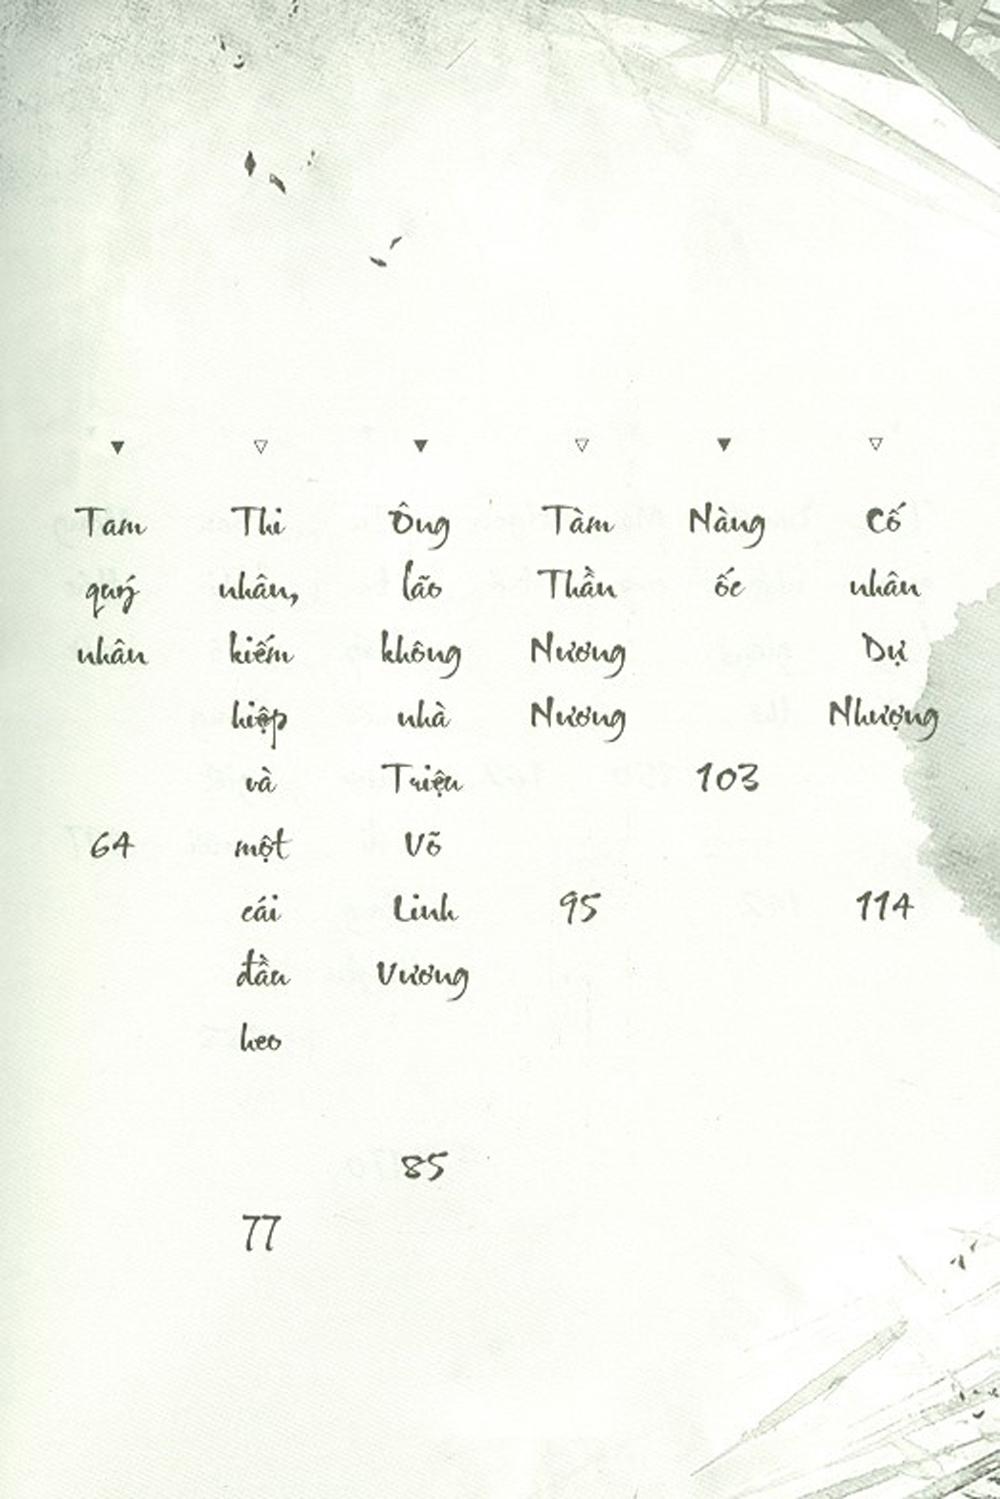 Tam quý nhân 64
Thi nhân, kiếm hiệp và một cái đầu heo 77
Ông lão không nhà Triệu Võ Linh Vương 85
Tàm Thần Nương Nương 95
Nàng ốc 103
Cố nhân Dự Nhượng 114